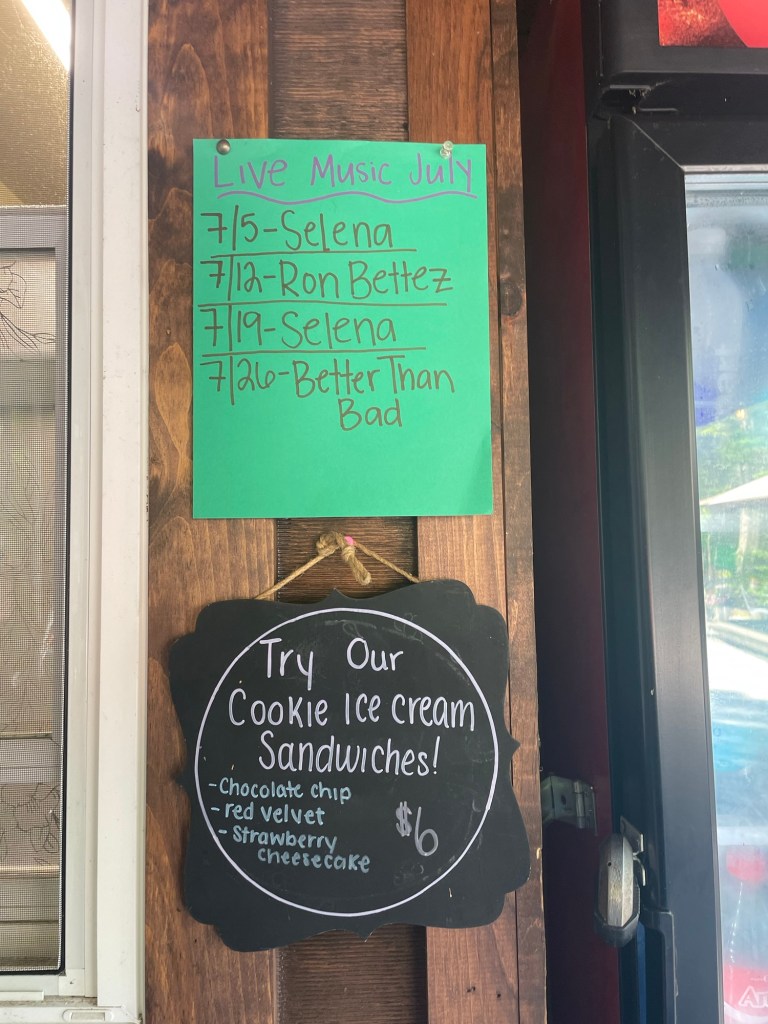 Live Music July
7/5-Selena
7/12-Ron Bettez
7/19-Selena
7/26-Better Than
Bad
Try Our
Cookie Ice cream
Sandwiches!
-Chocolate chip
- red velvet
- Strawberry
cheesecake
$6